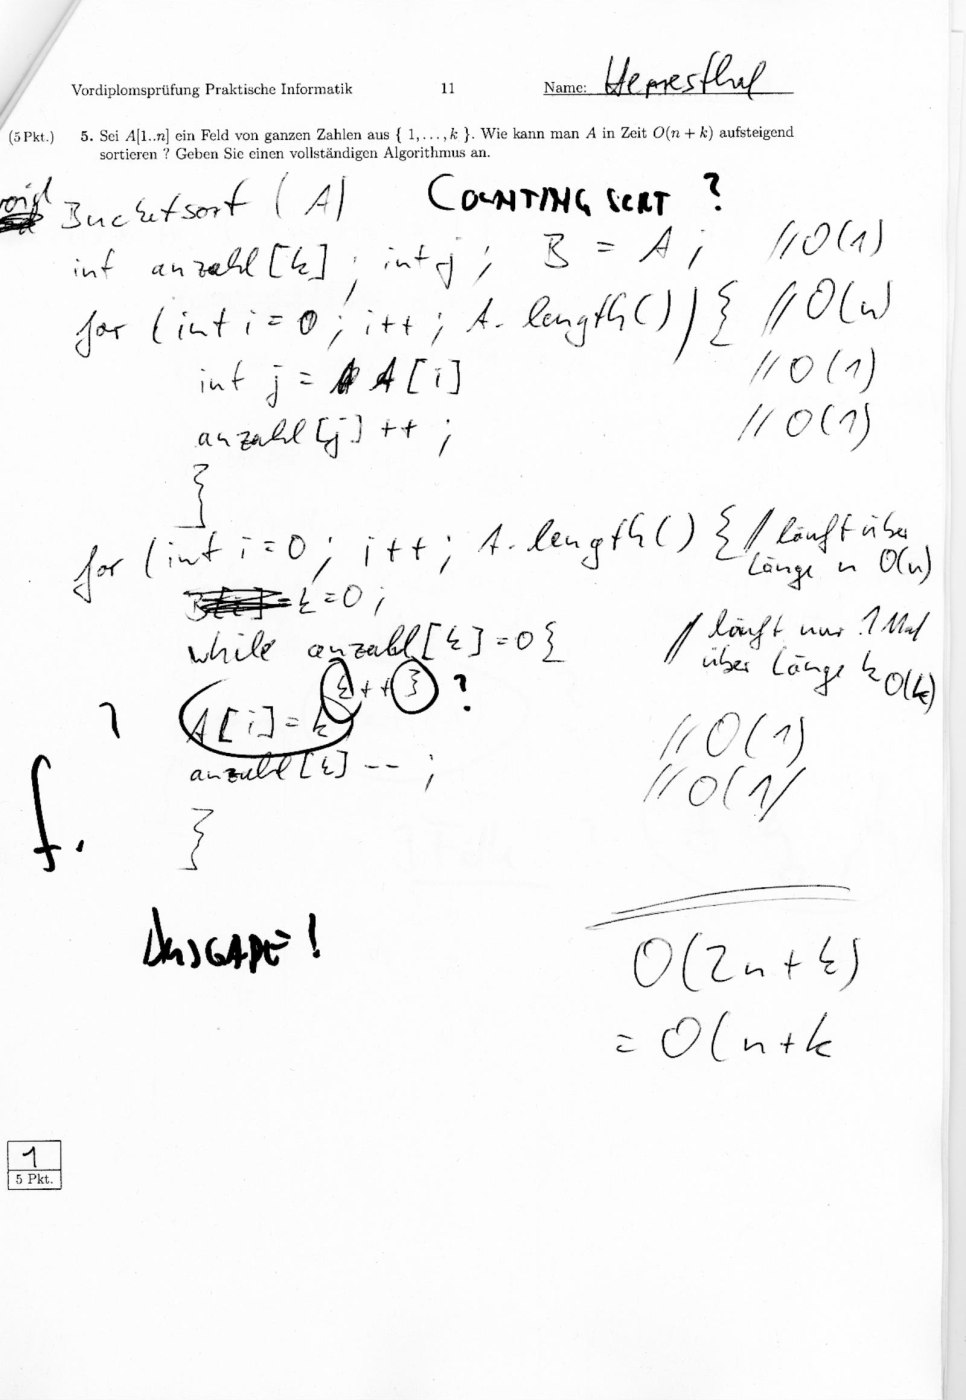 Vordiplomsprüfung Praktische Informatik 11 Name: Hermesthal
(5 Pkt.) 5. Sei A[1..n] ein Feld von ganzen Zahlen aus { 1,...,k }. Wie kann man A in Zeit O(n + k) aufsteigend
sortieren ? Geben Sie einen vollständigen Algorithmus an.
void Bucketsort (A) COUNTING SORT ?
int anzahl [k] ; int j ; B = A ; // O(1)
for (int i = 0 ; i++ ; A.length()) { // O(n)
int j = A[i] // O(1)
anzahl [j] ++ ; // O(1)
}
for (int i = 0 ; i++ ; A.length() { // läuft über
Länge n O(n)
k = 0 ;
while anzahl [k] = 0 { // läuft nur 1 Mal
über Länge k O(k)
k++ } ?
? A[i] = k // O(1)
anzahl [k] -- ; // O(1)
f.
}
AUSGABE !
O(2n + k)
= O(n + k
1
5 Pkt.